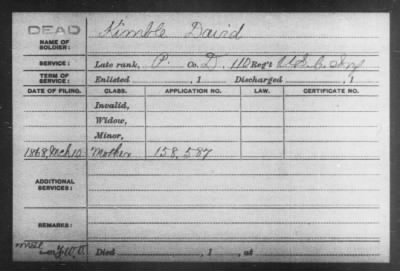 DEAD
NAME OF SOLDIER: Kimble David
SERVICE: Late rank, P. Co. D. 110 Reg't U.S.C. Inf.
TERM OF SERVICE: Enlisted , 1 Discharged , 1
DATE OF FILING. CLASS. APPLICATION NO. LAW. CERTIFICATE NO.
Invalid,
Widow,
Minor,
1868, Mch 10 Mother 158,587
ADDITIONAL SERVICES:
REMARKS:
Died , 1 , at